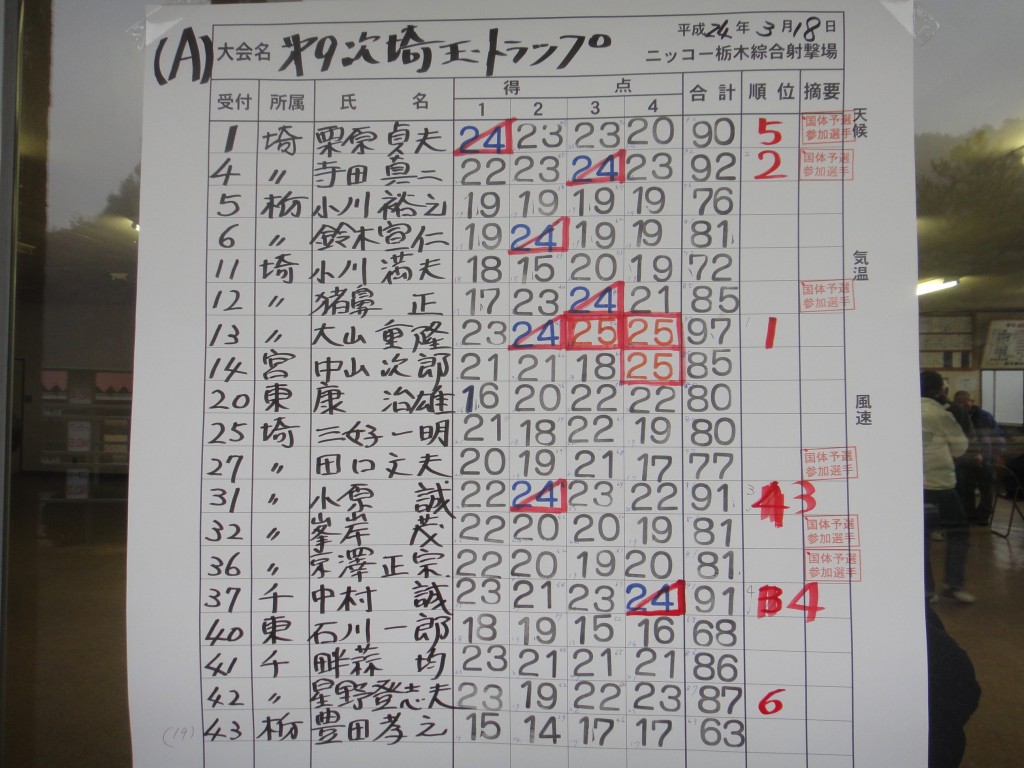 平成24年3月18日
(A) 大会名 第9次埼玉トランプ ニッコー栃木綜合射撃場
受付 所属 氏名 得点 1 2 3 4 合計 順位 摘要
天候
1 埼 栗原貞夫 24 23 23 20 90 5 国体予選参加選手
4 〃 寺田真二 22 23 24 23 92 2 国体予選参加選手
5 栃 小川裕之 19 19 19 19 76
6 〃 鈴木宣仁 19 24 19 19 81
気温
11 埼 小川満夫 18 15 20 19 72
12 〃 猪鼻正 17 23 24 21 85 国体予選参加選手
13 〃 大山重隆 23 24 25 25 97 1
14 宮 中山次郎 21 21 18 25 85
風速
20 東 康治雄 16 20 22 22 80
25 埼 三好一明 21 18 22 19 80
27 〃 田口文夫 20 19 21 17 77 国体予選参加選手
31 〃 小原誠 22 24 23 22 91 3
32 〃 峯岸茂 22 20 20 19 81 国体予選参加選手
36 〃 宗澤正宗 22 20 19 20 81 国体予選参加選手
37 千 中村誠 23 21 23 24 91 4
40 東 石川一郎 18 19 15 16 68
41 千 畔蒜均 23 21 21 21 86
42 〃 星野登志夫 23 19 22 23 87 6
(19) 43 栃 豊田孝之 15 14 17 17 63